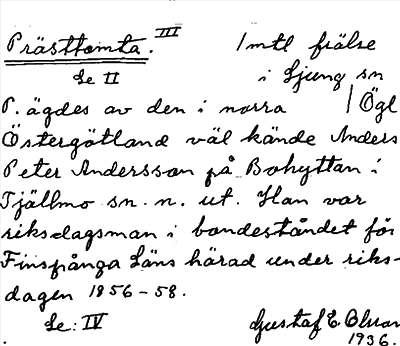 Prästtomta. III 1 mtl frälse
Se II i Ljung sn
P. ägdes av den i norra | Ögl
Östergötland väl kände Anders
Peter Andersson på Bohyttan i
Tjällmo sn. n. ut. Han var
riksdagsman i bondeståndet för
Finspånga Läns härad under riks-
dagen 1856-58.
Se: IV Gustaf E Olsson
1936.